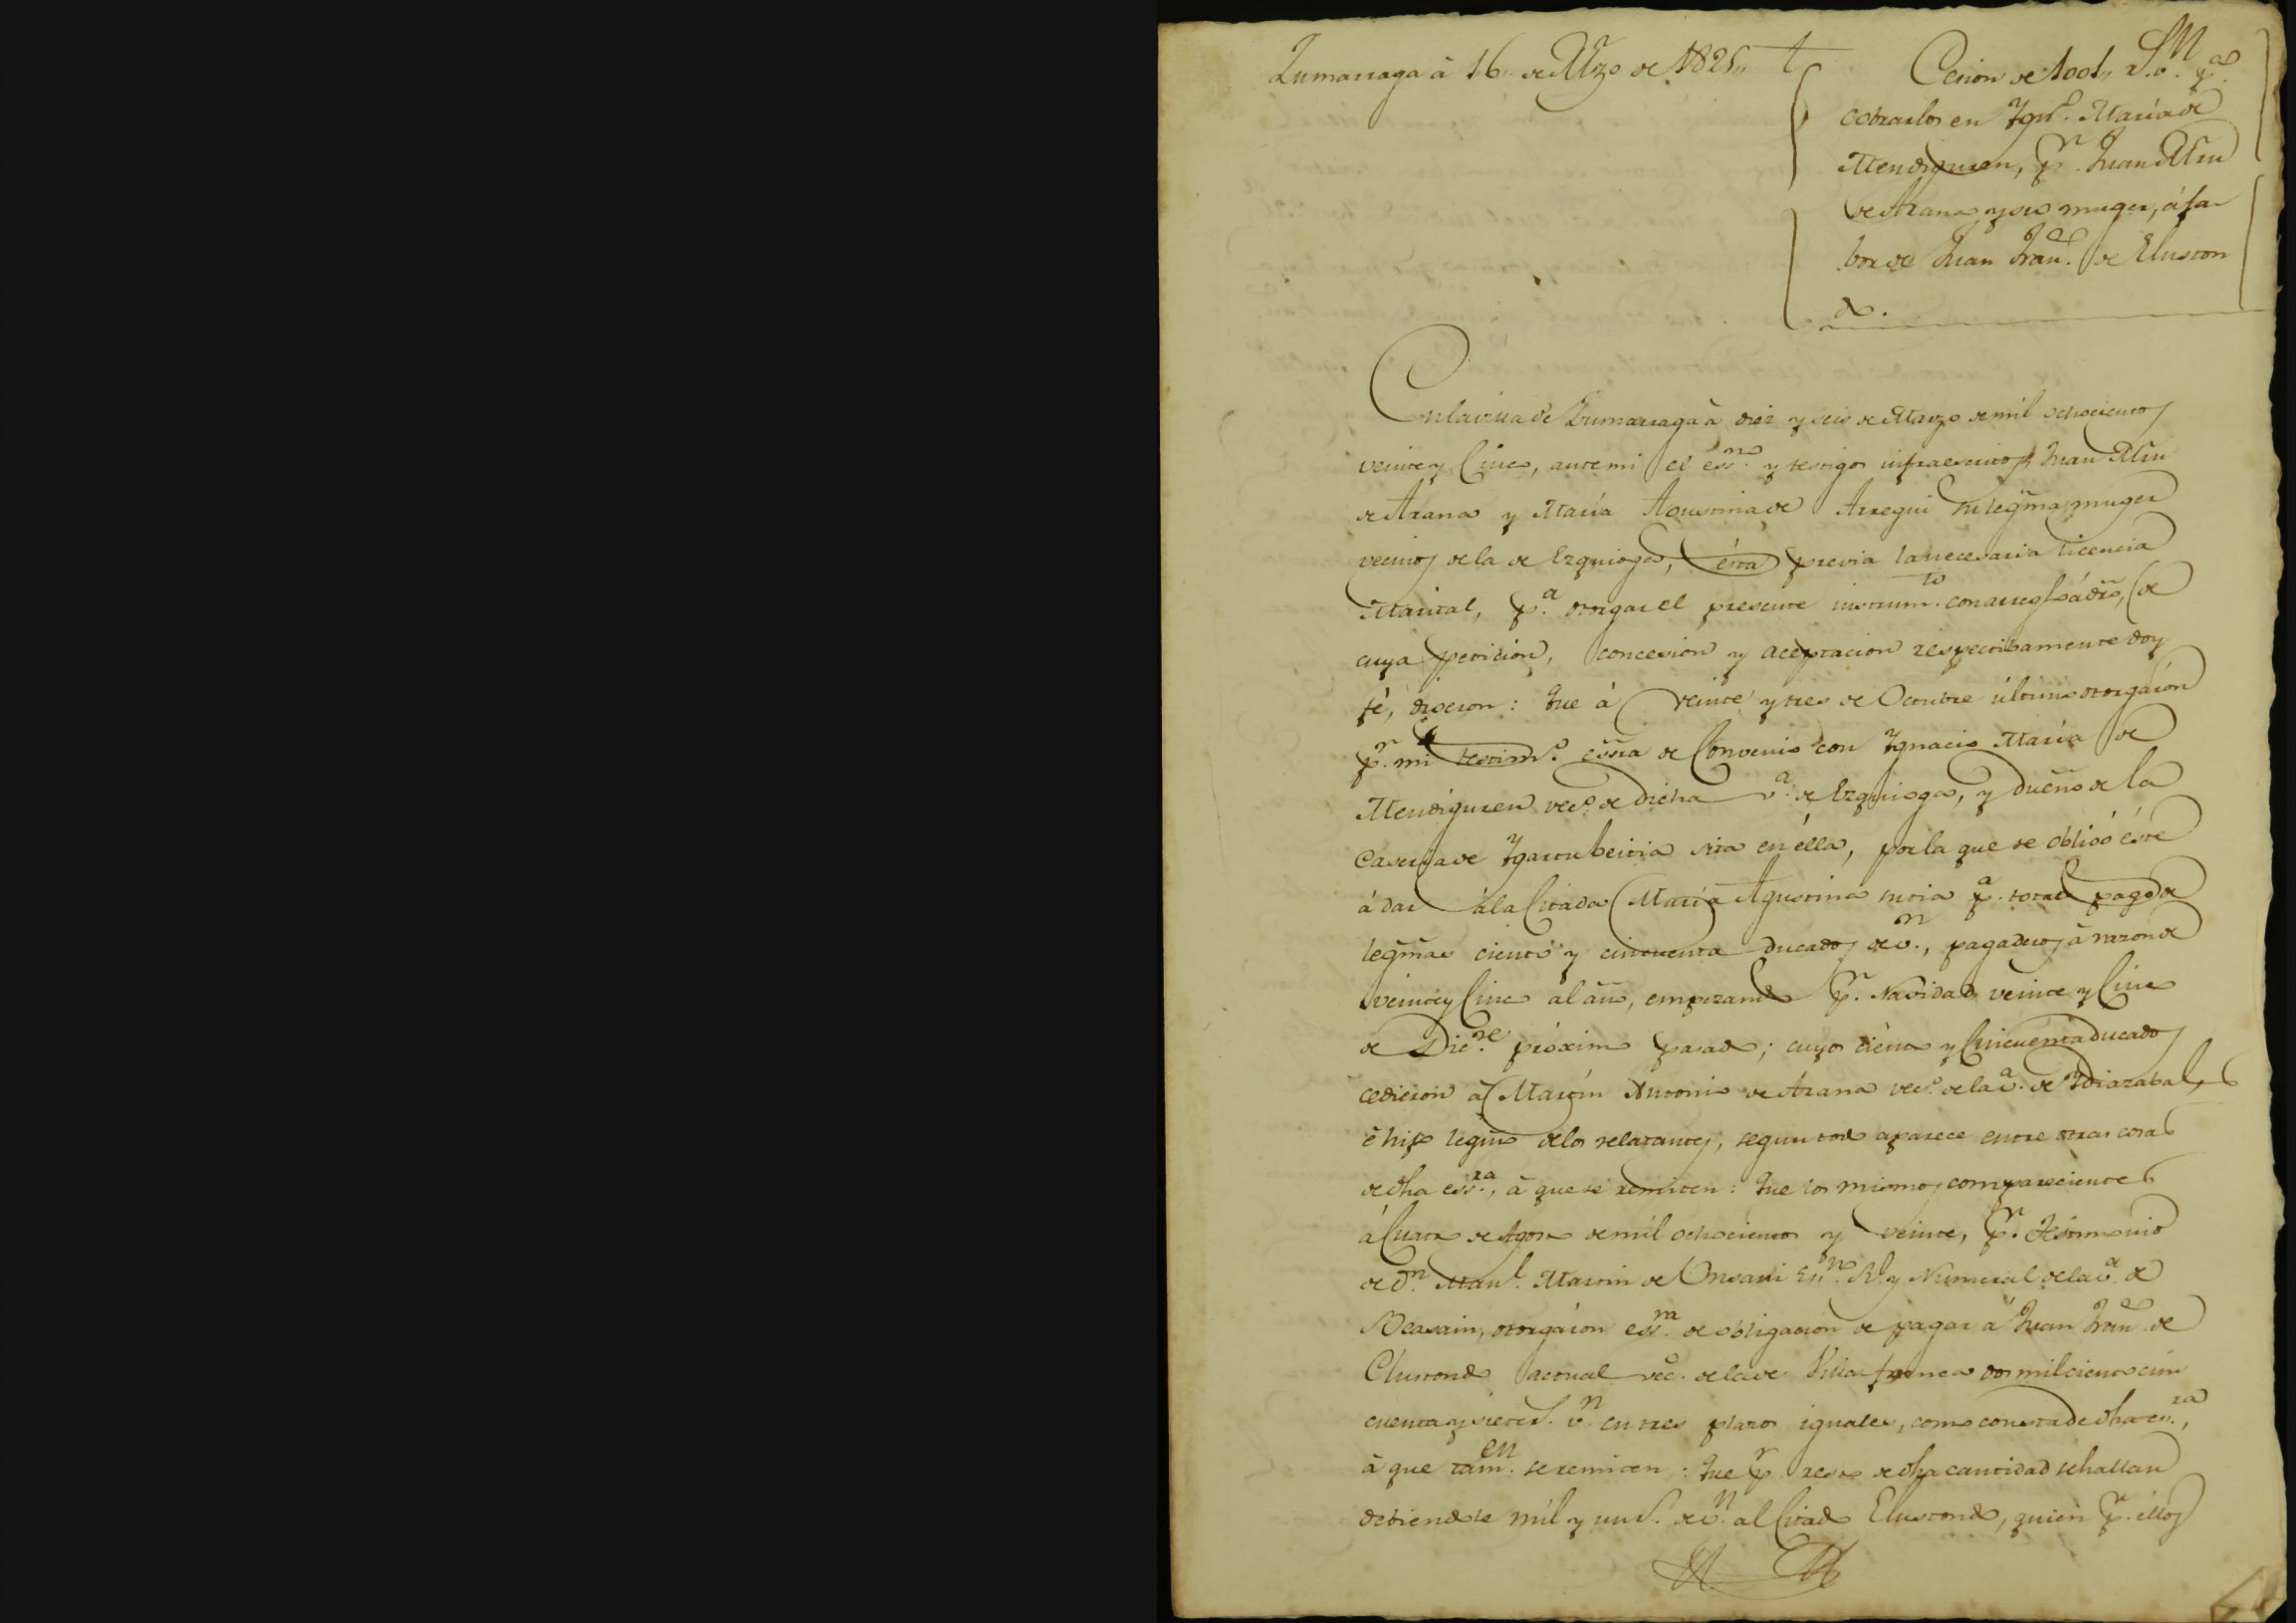 Zumarraga à 16,, de Mzo de 1825,, t
Cesion de 1001,, r.s v.n p.a
cobrarlos en Ygn.o María de
Mendiguren, p.r Juan Mrn
de Arana y su muger, á fa-
bor de Juan Fran.co de Eluston
do.
En la villa de Zumarraga à diez y seis de Marzo de mil ochocientos
veinte y Cinco, ante mi el ess.no y testigos infraescritos Juan Mrn
de Arana y María Agustina de Arregui su legma muger
vecinos de la de Ezquioga, ésta previa la necesaria licencia
Marital, p.a otorgar el presente instrum.to con arreglo á dro, de
cuya peticion, concesion y aceptacion respectibamente doy
fé, dixeron: Que á veinte y tres de Octubre último otorgáron
p.r mi testim.o essra de Convenio con Ygnacio María de
Mendiguren vec.o de dicha v.a de Ezquioga, y dueño de la
Casería de Ygartubeitia sita en élla, por la que se obligó éste
á dar á la Citada María Agustina su tia p.a total pago de
legmas ciento y cincuenta ducados de v.n, pagaderos à razon de
veinte y Cinco al año, empezando p.r Navidad veinte y Cinco
de Dic.re próximo pasado; cuyos ciento y Cincuenta ducados
cedieron à Martín Antonio de Arana vec.o de la v.a de Ydiazabal,
è hijo legmo de los relatantes, segun todo aparece entre otras cosas
de dha ess.ra, à que se remiten: Que los mismos comparecientes
á Cuatro de Agosto de mil ochocientos y veinte, p.r Testimonio
de D.n Man.l Martin de Unsain Ess.no R.l y Numeral de la v.a de
Beasain, otorgáron ess.ra de obligacion de pagar á Juan Fran.co de
Elustondo actual vec.o de la de Villafranca dos mil ciento cin
cuenta y siete r.s v.n en tres plazos iguales, como consta de dha ess.ra,
à que tam.en se remiten: Que p.r resto de dha cantidad se hallan
debiendole mil y un r.s de v.n al Citado Elustondo, quien p.r éllos